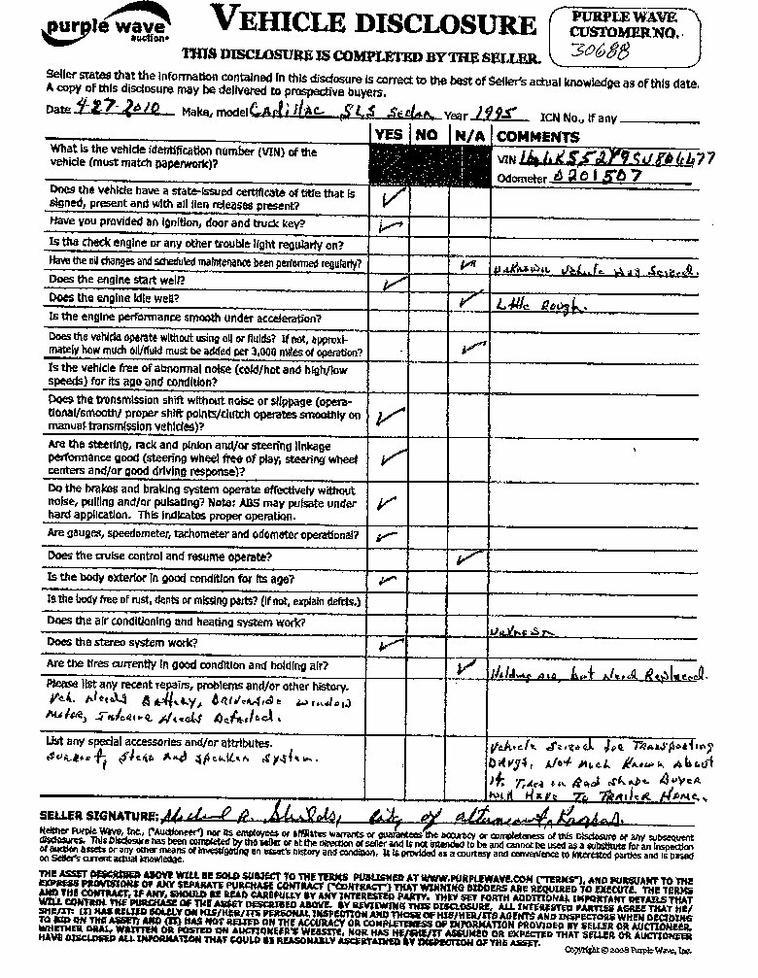 purple wave auction
VEHICLE DISCLOSURE
PURPLE WAVE
CUSTOMER NO.
30688
THIS DISCLOSURE IS COMPLETED BY THE SELLER.
Seller states that the information contained in this disclosure is correct to the best of Seller's actual knowledge as of this date.
A copy of this disclosure may be delivered to prospective buyers.
Date 4-27-2010 Make, model Cadillac SLS Sedan Year 1995 ICN No., if any
YES NO N/A COMMENTS
What is the vehicle identification number (VIN) of the
vehicle (must match paperwork)?
VIN
Odometer 0201507
Does the vehicle have a state-issued certificate of title that is
signed, present and with all lien releases present?
Have you provided an ignition, door and truck key?
Is the check engine or any other trouble light regularly on?
Have the oil changes and scheduled maintenance been performed regularly? unknown vehicle was seized.
Does the engine start well?
Does the engine idle well? Little Rough.
Is the engine performance smooth under acceleration?
Does the vehicle operate without using oil or fluids? If not, approxi-
mately how much oil/fluid must be added per 3,000 miles of operation?
Is the vehicle free of abnormal noise (cold/hot and high/low
speeds) for its age and condition?
Does the transmission shift without noise or slippage (opera-
tional/smooth/ proper shift points/clutch operates smoothly on
manual transmission vehicles)?
Are the steering, rack and pinion and/or steering linkage
performance good (steering wheel free of play, steering wheel
centers and/or good driving response)?
Do the brakes and braking system operate effectively without
noise, pulling and/or pulsating? Note: ABS may pulsate under
hard application. This indicates proper operation.
Are gauges, speedometer, tachometer and odometer operational?
Does the cruise control and resume operate?
Is the body exterior in good condition for its age?
Is the body free of rust, dents or missing parts? (If not, explain defcts.)
Does the air conditioning and heating system work?
Does the stereo system work?
Are the tires currently in good condition and holding air? Holding air, but need Replaced.
Please list any recent repairs, problems and/or other history.
Veh. Needs Battery, Driverside window
Motor, Interior Needs Detailed.
List any special accessories and/or attributes.
Sunroof, Steno and speaker system.
Vehicle Seized for Transporting
Drugs, Not Much Known About
it. Tires in Bad shape Buyer
will Have To Trailer Home.
SELLER SIGNATURE: Michael R. Shields, City of Altamont, Kansas.
Neither Purple Wave, Inc., ("Auctioneer") nor its employees or affiliates warrants or guarantees the accuracy or completeness of this Disclosure or any subsequent
disclosures. This Disclosure has been completed by the seller or at the direction of seller and is not intended to be and cannot be used as a substitute for an inspection
of auction assets or any other means of investigating an asset's history and condition. It is provided as a courtesy and convenience to interested parties and is based
on Seller's current actual knowledge.
THE ASSET DESCRIBED ABOVE WILL BE SOLD SUBJECT TO THE TERMS PUBLISHED AT WWW.PURPLEWAVE.COM ("TERMS"), AND PURSUANT TO THE
EXPRESS PROVISIONS OF ANY SEPARATE PURCHASE CONTRACT ("CONTRACT") THAT WINNING BIDDERS ARE REQUIRED TO EXECUTE. THE TERMS
AND THE CONTRACT, IF ANY, SHOULD BE READ CAREFULLY BY ANY INTERESTED PARTY. THEY SET FORTH ADDITIONAL IMPORTANT DETAILS THAT
WILL CONTROL THE PURCHASE OF THE ASSET DESCRIBED ABOVE. BY REVIEWING THIS DISCLOSURE, ALL INTERESTED PARTIES AGREE THAT HE/
SHE/IT: (I) HAS RELIED SOLELY ON HIS/HER/ITS PERSONAL INSPECTION AND THOSE OF HIS/HER/ITS AGENTS AND INSPECTORS WHEN DECIDING
TO BID ON THE ASSET; AND (II) HAS NOT RELIED ON THE ACCURACY OR COMPLETENESS OF INFORMATION PROVIDED BY SELLER OR AUCTIONEER,
WHETHER ORAL, WRITTEN OR POSTED ON AUCTIONEER'S WEBSITE, NOR HAS HE/SHE/IT ASSUMED OR EXPECTED THAT SELLER OR AUCTIONEER
HAVE DISCLOSED ALL INFORMATION THAT COULD BE REASONABLY ASCERTAINED BY INSPECTION OF THE ASSET.
Copyright © 2008 Purple Wave, Inc.